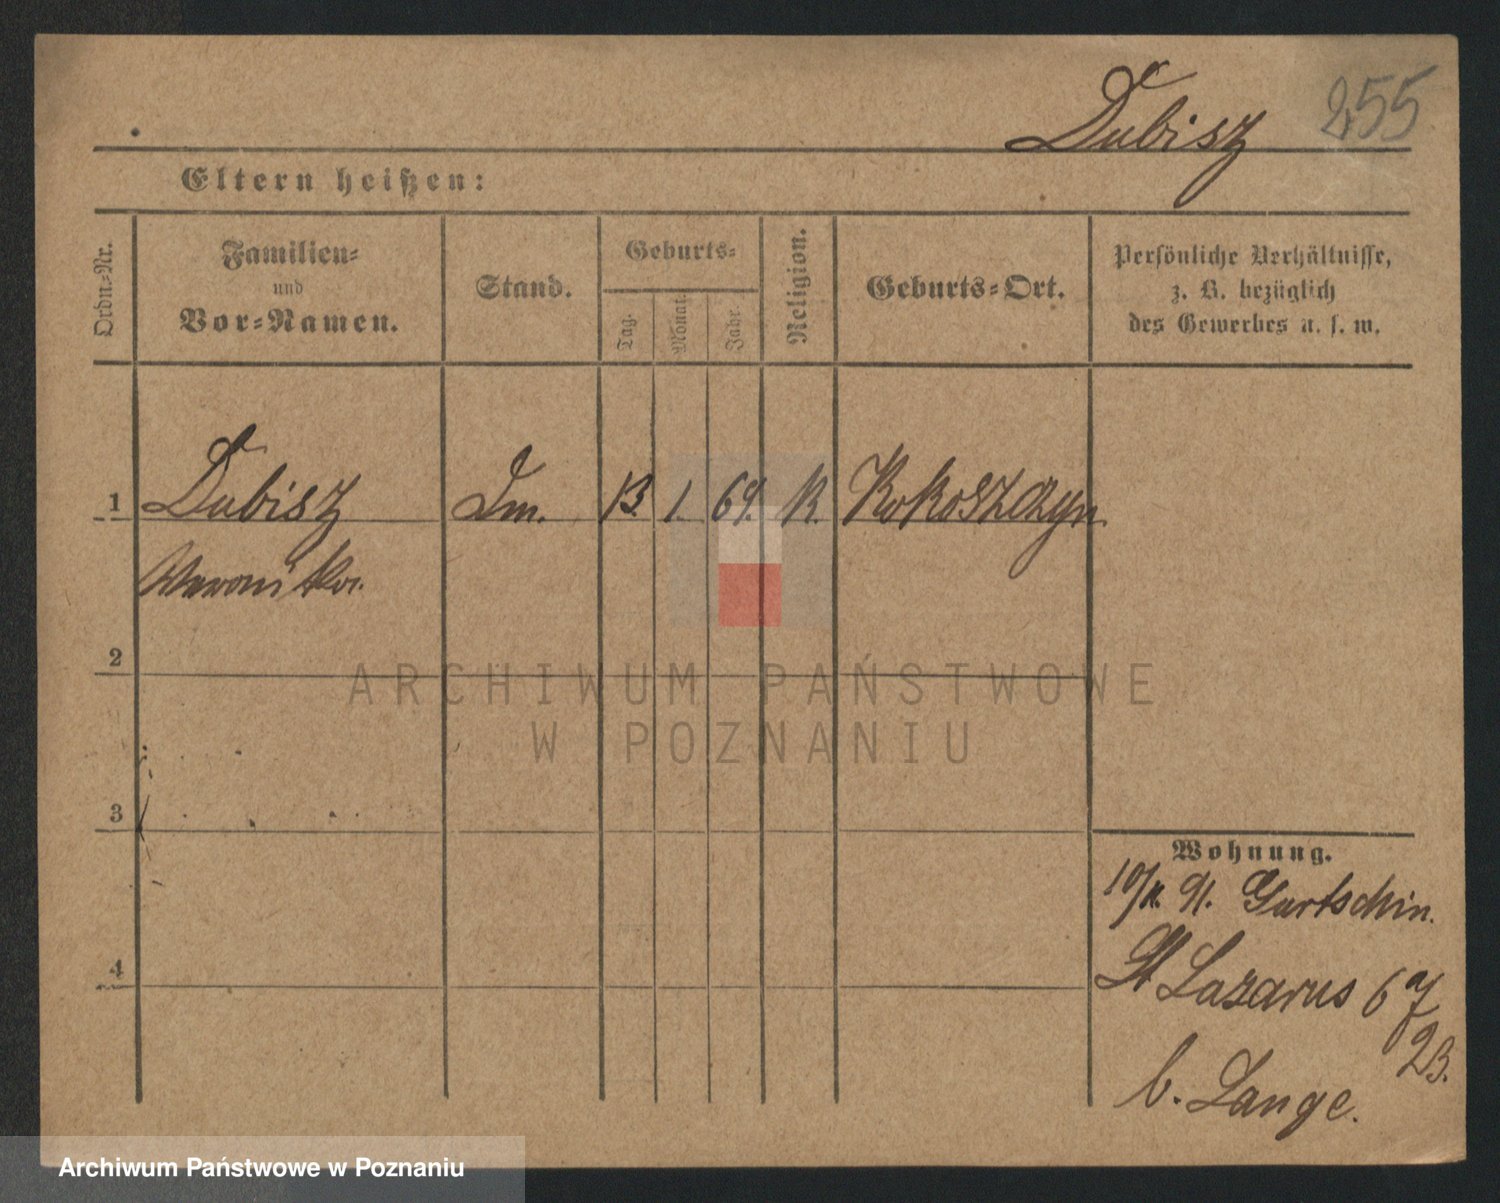 Dubisz 255
Eltern heißen:
Ordn.-Nr.
Familien-
und
Vor-Namen.
Stand.
Geburts-
Tag.
Monat.
Jahr.
Religion.
Geburts-Ort.
Persönliche Verhältnisse,
z. B. bezüglich
des Gewerbes u. s. w.
1 Dubisz Dm. 13. 1. 69. K. Kokoszczyn
Weronika.
2
3
4
Wohnung.
91. Gurtschin.
St Lazarus 67
b. Lange.
ARCHIWUM PAŃSTWOWE
W POZNANIU
Archiwum Państwowe w Poznaniu